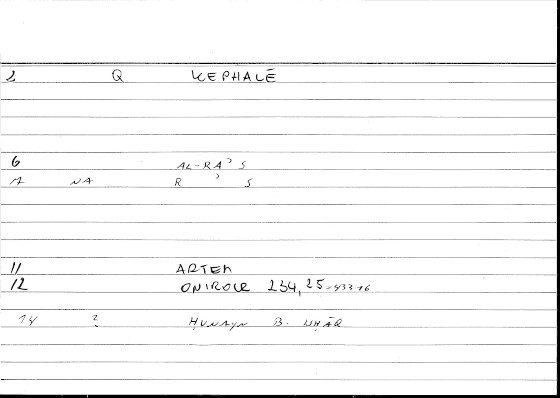 2 Q KEPHALĒ
6 AL-RAʾS
7 NA R ʾ S
11 ARTEM
12 ONIROCR 234,25-433-16
14 ? ḤUNAYN B. ISḤĀQ